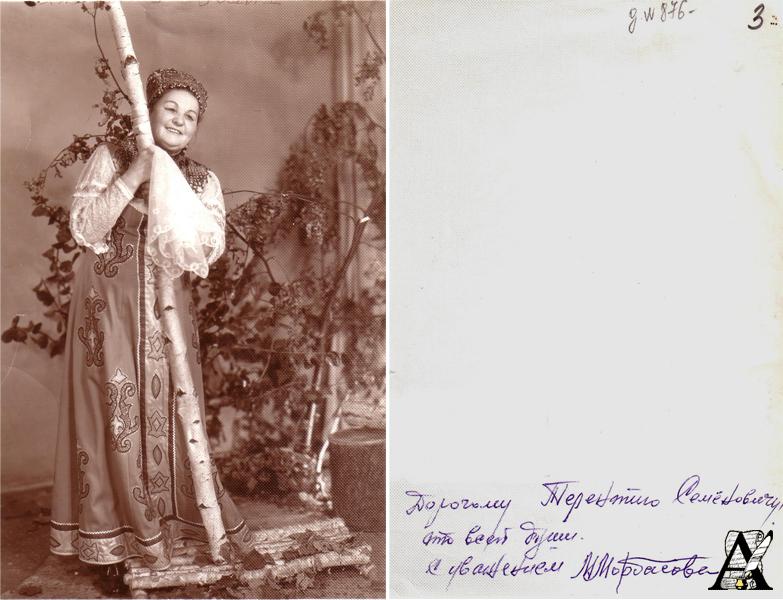 д. № 876-
3
Дорогому Терентию Семёновичу,
от всей души.
С уважением М Мордасова
А